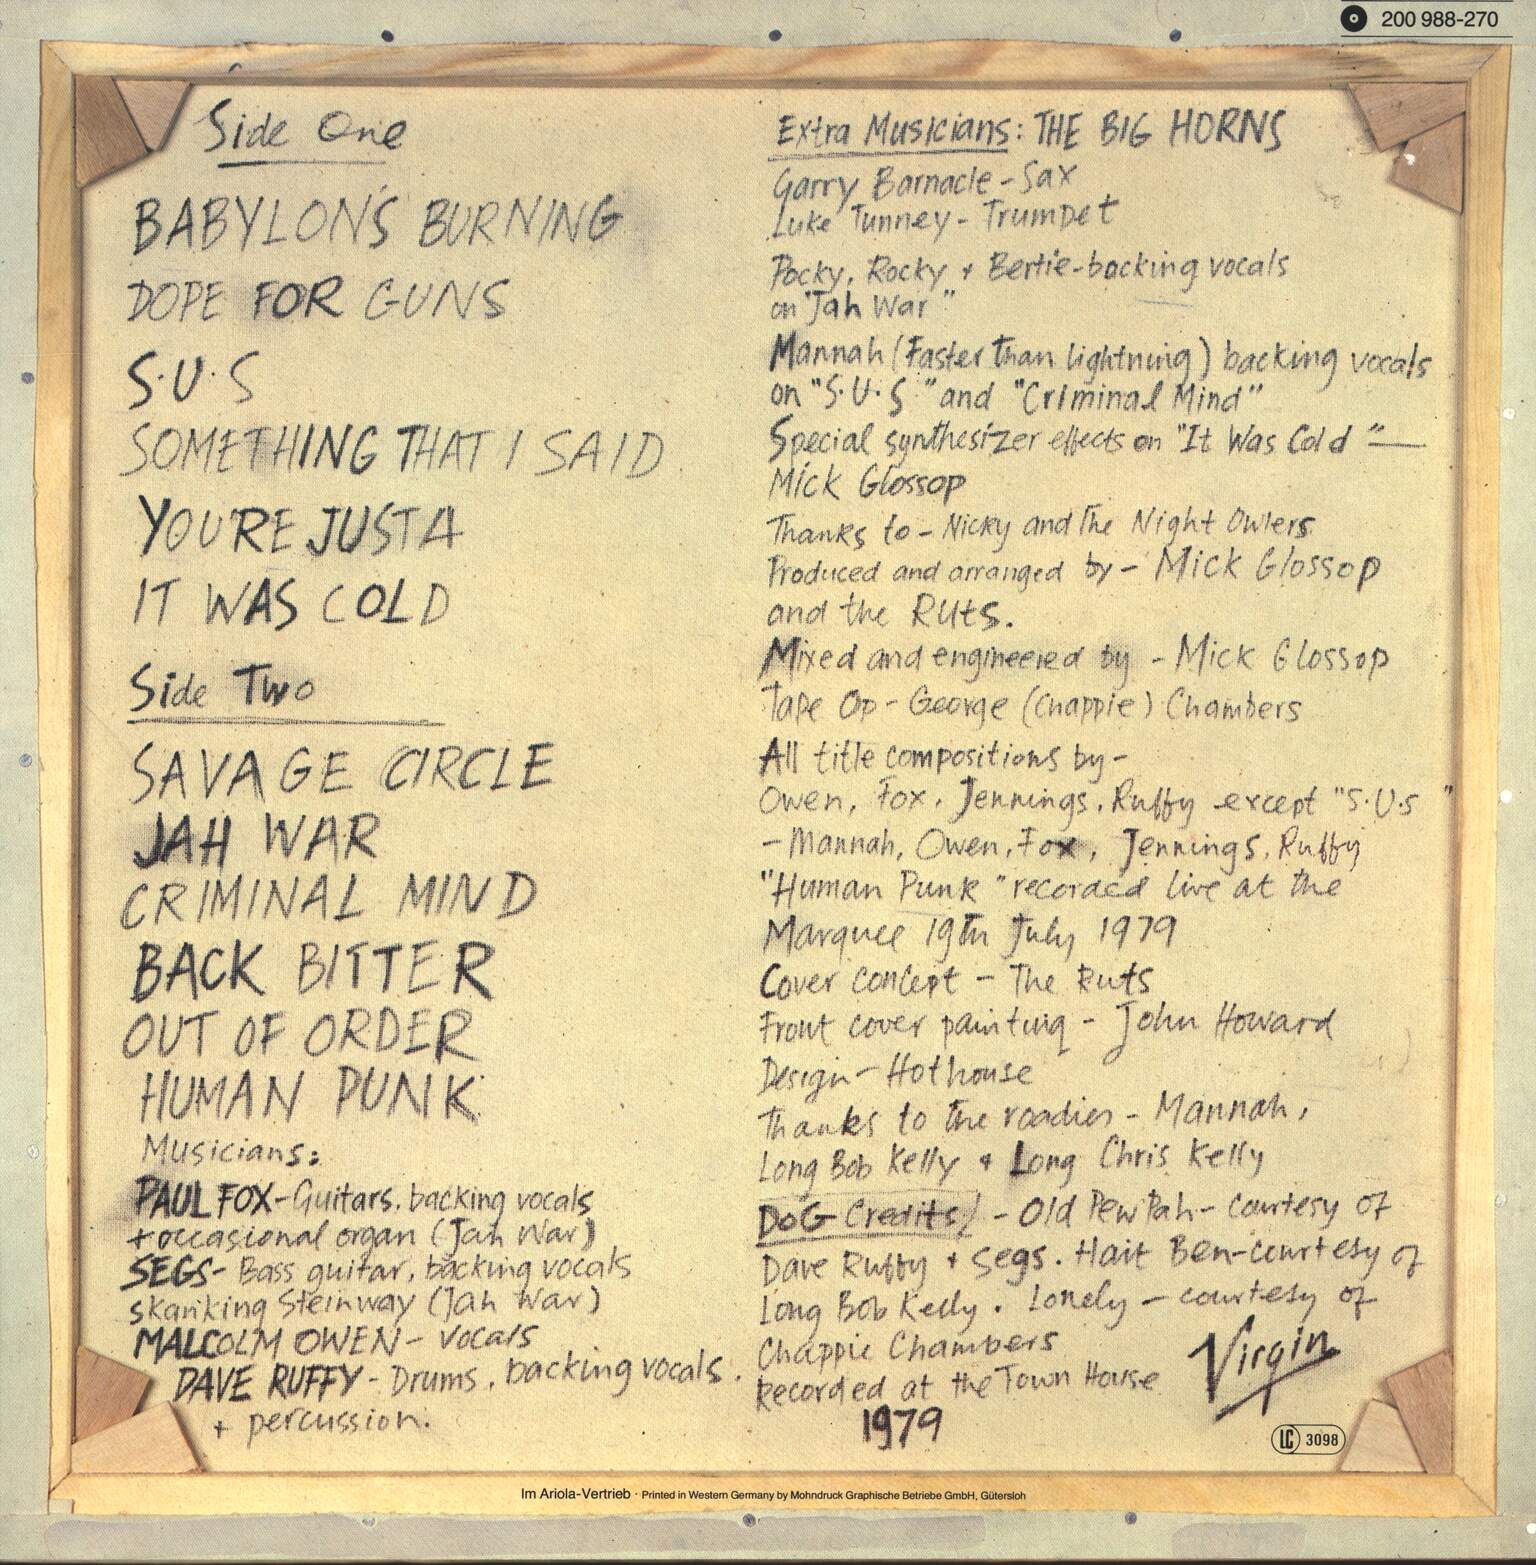 200 988-270
Side One
BABYLON'S BURNING
DOPE FOR GUNS
S.U.S
SOMETHING THAT I SAID
YOU'RE JUST A
IT WAS COLD
Side Two
SAVAGE CIRCLE
JAH WAR
CRIMINAL MIND
BACK BITTER
OUT OF ORDER
HUMAN PUNK
Musicians:
PAUL FOX - Guitars, backing vocals
+ occasional organ (Jah War)
SEGS - Bass guitar, backing vocals
skanking Steinway (Jah War)
MALCOLM OWEN - Vocals
DAVE RUFFY - Drums, backing vocals.
+ percussion.
Extra Musicians: THE BIG HORNS
Garry Barnacle - Sax
Luke Tunney - Trumpet
Pocky, Rocky + Bertie - backing vocals
on "Jah War"
Mannah (Faster Than lightning) backing vocals
on "S.U.S" and "Criminal Mind"
Special synthesizer effects on "It Was Cold" —
Mick Glossop
Thanks to - Nicky and The Night Owlers
Produced and arranged by - Mick Glossop
and the Ruts.
Mixed and engineered by - Mick Glossop
Tape Op - George (Chappie) Chambers
All title compositions by -
Owen, Fox, Jennings, Ruffy except "S.U.S"
- Mannah, Owen, Fox, Jennings, Ruffy
"Human Punk" recorded live at the
Marquee 19th July 1979
Cover concept - The Ruts
Front cover painting - John Howard
Design - Hothouse
Thanks to the roadies - Mannah,
Long Bob Kelly + Long Chris Kelly
DOG Credits! - Old Pew Pah - courtesy of
Dave Ruffy + Segs. Hait Ben - courtesy of
Long Bob Kelly. Lonely - courtesy of
Chappie Chambers
Recorded at the Town House
1979
Virgin
LC 3098
Im Ariola-Vertrieb · Printed in Western Germany by Mohndruck Graphische Betriebe GmbH, Gütersloh